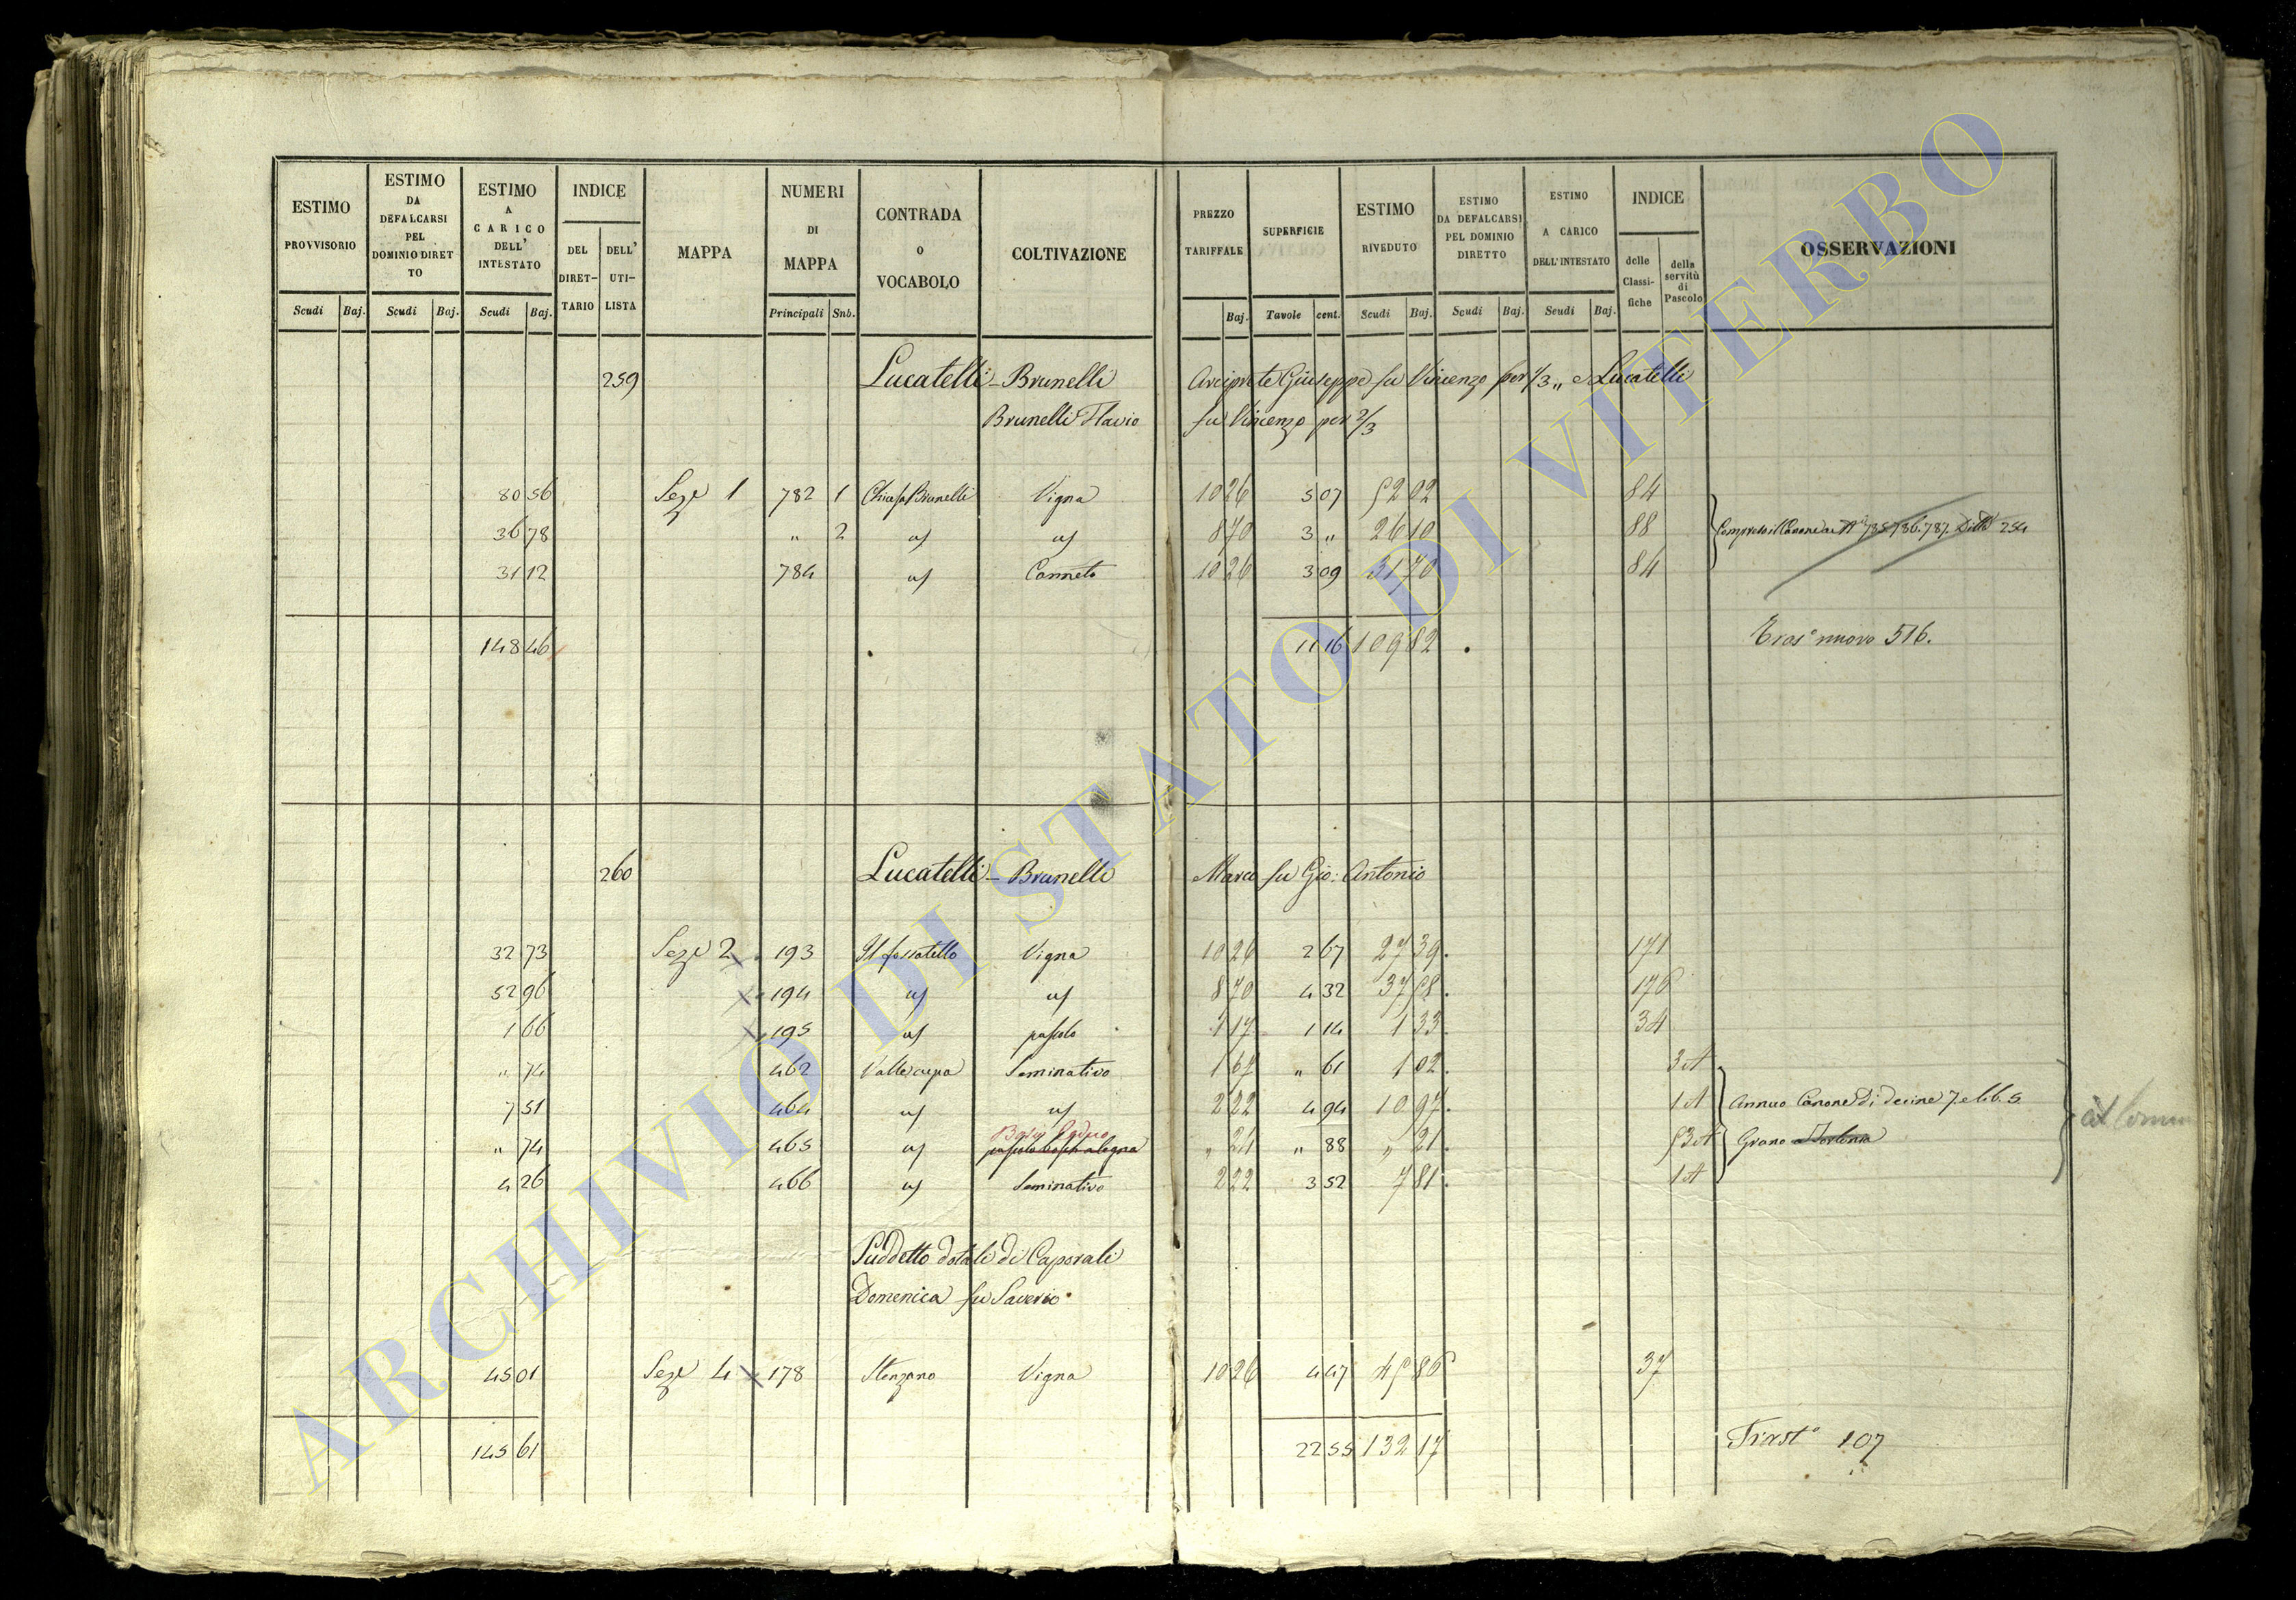 ESTIMO PROVVISORIO | ESTIMO DA DEFALCARSI PEL DOMINIO DIRETTO | ESTIMO A CARICO DELL' INTESTATO | INDICE | MAPPA | NUMERI DI MAPPA | CONTRADA O VOCABOLO | COLTIVAZIONE | PREZZO TARIFFALE | SUPERFICIE | ESTIMO RIVEDUTO | ESTIMO DA DEFALCARSI PEL DOMINIO DIRETTO | ESTIMO A CARICO DELL'INTESTATO | INDICE | OSSERVAZIONI
DEL DIRET-TARIO | DELL' UTI-LISTA | delle Classi-fiche | della servitù di Pascolo
Scudi | Baj. | Scudi | Baj. | Scudi | Baj. | Principali | Snb. | Baj. | Tavole | cent. | Scudi | Baj. | Scudi | Baj. | Scudi | Baj.
259 Lucatelli - Brunelli Arciprete Giuseppe fu Vincenzo per 1/3 „ e Lucatelli
Brunelli Flavio fu Vincenzo per 2/3
80 56 Seze 1 782 1 Brunelli Vigna 10 26 5 07 52 02 84
36 78 „ 2 us us 8 70 3 „ 26 10 88 254
31 12 784 us Canneto 10 26 3 09 31 70 84
148 46 11 16 109 82 Tras° nuovo 516.
260 Lucatelli - Brunelli Marco fu Gio: Antonio
32 73 Seze 2 193 Il fossatello Vigna 10 26 2 67 27 39 171
52 96 194 us us 8 70 4 32 37 58 176
1 66 195 us pascolo 1 17 1 14 1 33 34
„ 74 462 Valle cupa Seminativo 1 67 „ 61 1 02 3 A
7 51 464 us us 2 22 4 94 10 97 1 A Annuo Canone di decine 7. e lib. 5
„ 74 465 us „ 24 „ 88 „ 21 53 A Grano
4 26 466 us Seminativo 2 22 3 52 7 81 1 A
Suddetto dotale di Caporali
Domenica fu Saverio
45 01 Seze 4 178 Stenzano Vigna 10 26 4 47 45 86 37
145 61 22 55 132 17 Trast° 107
ARCHIVIO DI STATO DI VITERBO